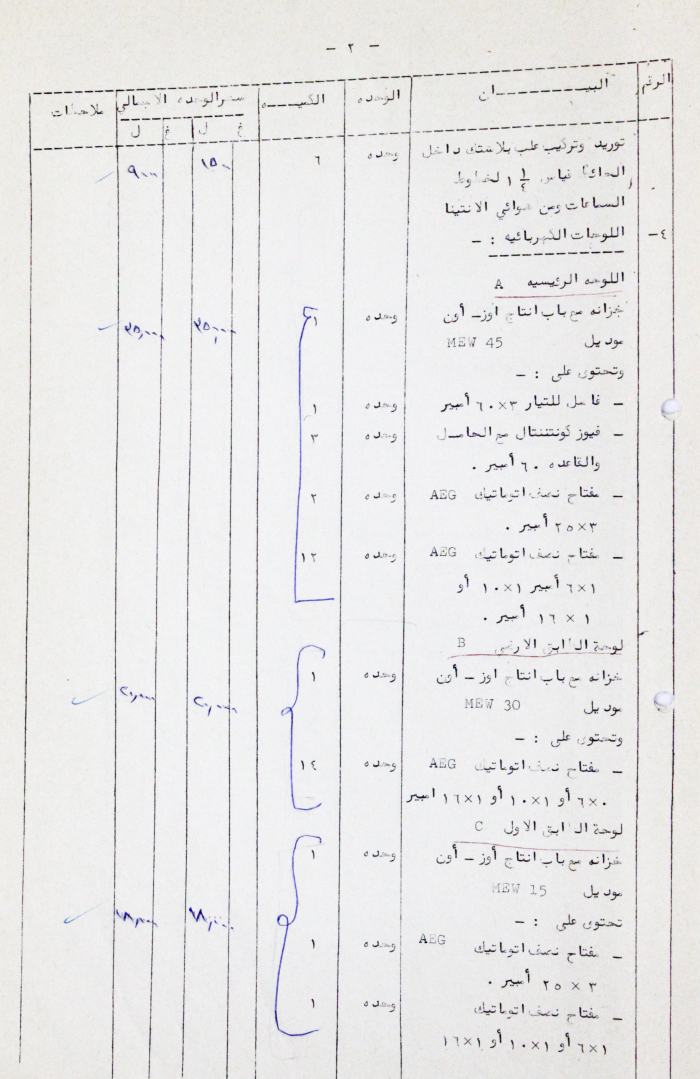 - ٢ -
الرقم البيـــــــان الوحده الكميــه سعر الوحده الاجمالي ملاحظات
غ ل غ ل
توريد وتركيب علب بلاستك داخل وحده ٦ ١٥٠٠ ٩٠٠٠
الحائط قياس ١ ١/٢ لخطوط
السماعات ومن هوائي الانتينا
٤- اللوحات الكهربائيه : -
اللوحه الرئيسيه A
خزانه مع باب انتاج اوز - أون وحده ١ ٣٥,٠٠٠ ٣٥,٠٠٠
موديل MEW 45
وتحتوى على : -
- فاصل للتيار ٣×٦٠ أمبير وحده ١
- فيوز كونتننتال مع الحامــل وحده ٣
والقاعده ٦٠ أمبير .
- مفتاح نصف اتوماتيك AEG وحده ٢
٣×٢٥ أمبير .
- مفتاح نصف اتوماتيك AEG وحده ١٢
١×٦ أمبير ١×١٠ أو
١ × ١٦ أمبير .
لوحة الطابق الارضي B
خزانه مع باب انتاج اوز - أون وحده ١ ٢٠,٠٠٠ ٢٠,٠٠٠
موديل MEW 30
وتحتوى على : -
- مفتاح نصف اتوماتيك AEG وحده ١٤
٦×٠ أو ١×١٠ أو ١×١٦ امبير
لوحة الطابق الاول C
خزانه مع باب انتاج أوز - أون وحده ١ ١٨,٠٠٠ ١٨,٠٠٠
موديل MEW 15
تحتوى على : -
- مفتاح نصف اتوماتيك AEG وحده ١
٣ × ٢٥ أمبير .
- مفتاح نصف اتوماتيك وحده ١
١×٦ أو ١×١٠ أو ١×١٦